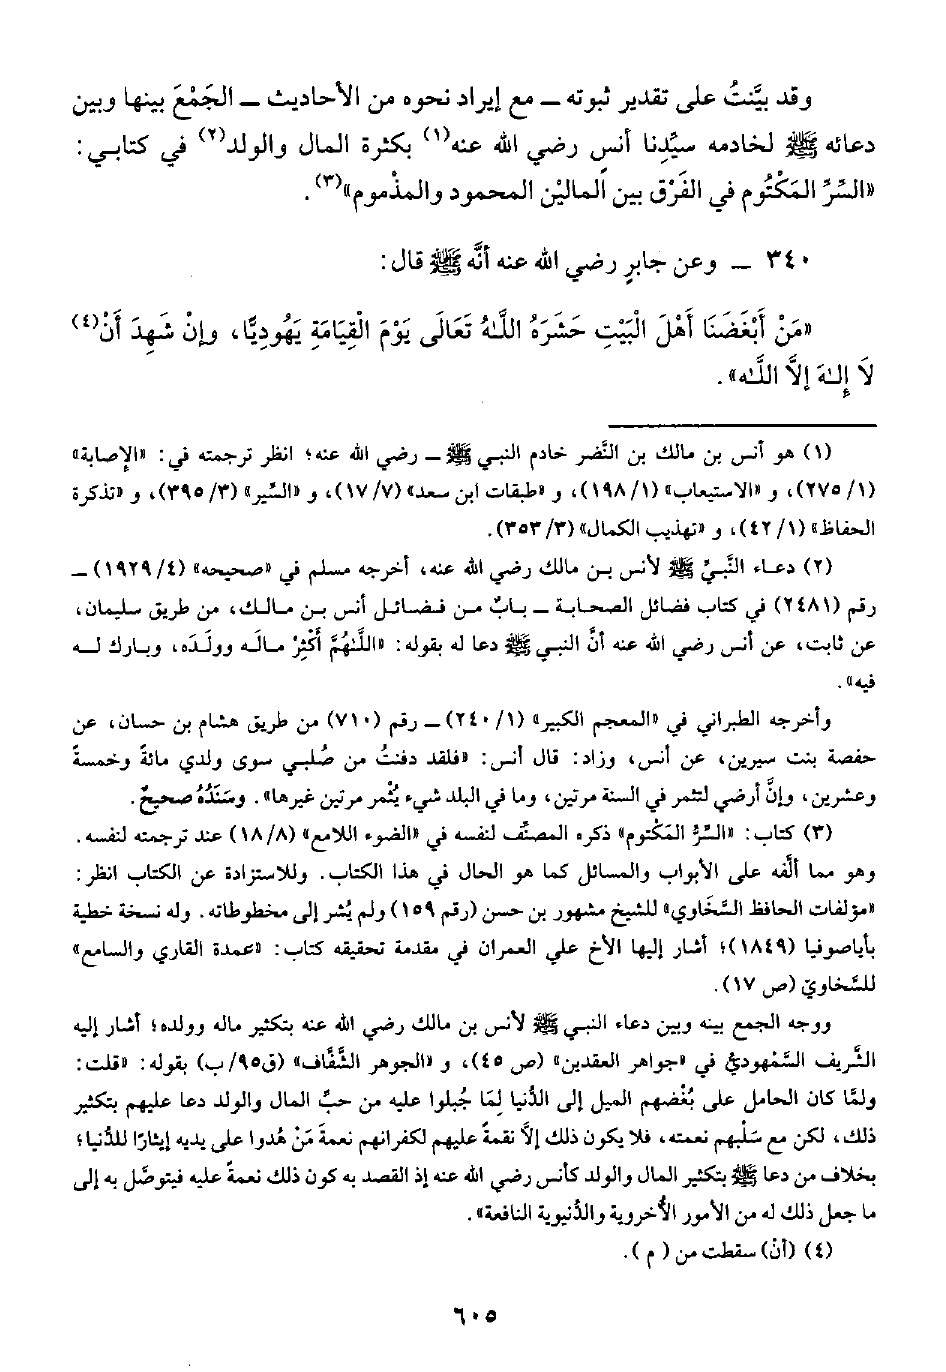 وقد بيَّنتُ على تقدير ثبوته ــ مع إيراد نحوه من الأحاديث ــ الجَمْعَ بينها وبين
دعائه ﷺ لخادمه سيِّدِنا أنس رضي الله عنه(١) بكثرة المال والولد(٢) في كتابي:
«السِّرِّ المَكْتُوم في الفَرْق بين المالَيْن المحمود والمذموم»(٣).
٣٤٠ ــ وعن جابرٍ رضي الله عنه أنَّه ﷺ قال:
«مَنْ أَبْغَضَنَا أَهْلَ الْبَيْتِ حَشَرَهُ اللَّـهُ تَعَالَى يَوْمَ الْقِيَامَةِ يَهُودِيًّا، وإنْ شَهِدَ أَنْ(٤)
لَا إِلـٰهَ إلاَّ اللَّـٰه».
(١) هو أنس بن مالك بن النَّضر خادم النبي ﷺ ــ رضي الله عنه؛ انظر ترجمته في: «الإصابة»
(٢٧٥/١)، و «الاستيعاب» (١٩٨/١)، و «طبقات ابن سعد» (١٧/٧)، و «السِّير» (٣٩٥/٣)، و «تذكرة
الحفاظ» (٤٢/١)، و «تهذيب الكمال» (٣٥٣/٣).
(٢) دعاء النَّبيِّ ﷺ لأنس بن مالك رضي الله عنه، أخرجه مسلم في «صحيحه» (١٩٢٩/٤) ــ
رقم (٢٤٨١) في كتاب فضائل الصحابة ــ بابٌ من فضائل أنس بن مالك، من طريق سليمان،
عن ثابت، عن أنس رضي الله عنه أنَّ النبي ﷺ دعا له بقوله: «اللَّهُمَّ أَكْثِرْ مالَه وولَدَه، وبارك له
فيه».
وأخرجه الطبراني في «المعجم الكبير» (٢٤٠/١) ــ رقم (٧١٠) من طريق هشام بن حسان، عن
حفصة بنت سيرين، عن أنس، وزاد: قال أنس: «فلقد دفنتُ من صُلبي سوى ولدي مائةً وخمسةً
وعشرين، وإنَّ أرضي لتثمر في السنة مرتين، وما في البلد شيء يُثْمر مرتين غيرها». وسَنَدُهُ صحيحٌ.
(٣) كتاب: «السِّرُّ المَكْتوم» ذكره المصنِّف لنفسه في «الضوء اللامع» (١٨/٨) عند ترجمته لنفسه.
وهو مما ألَّفه على الأبواب والمسائل كما هو الحال في هذا الكتاب. وللاستزادة عن الكتاب انظر:
«مؤلفات الحافظ السَّخَاوي» للشيخ مشهور بن حسن (رقم ١٥٩) ولم يُشر إلى مخطوطاته. وله نسخة خطية
بأياصوفيا (١٨٤٩)؛ أشار إليها الأخ علي العمران في مقدمة تحقيقه كتاب: «عمدة القاري والسامع»
للسَّخاويّ (ص ١٧).
ووجه الجمع بينه وبين دعاء النبي ﷺ لأنس بن مالك رضي الله عنه بتكثير ماله وولده؛ أشار إليه
الشَّريف السَّمْهوديُّ في «جواهر العقدين» (ص ٤٥)، و «الجوهر الشَّفَّاف» (ق٩٥/ ب) بقوله: «قلت:
ولمَّا كان الحامل على بُغْضهم الميل إلى الدُّنيا لِمَا جُبلوا عليه من حبِّ المال والولد دعا عليهم بتكثير
ذلك، لكن مع سَلْبهم نعمته، فلا يكون ذلك إلاَّ نقمةً عليهم لكفرانهم نعمةَ مَنْ هُدوا على يديه إيثارًا للدُّنيا؛
بخلاف من دعا ﷺ بتكثير المال والولد كأنس رضي الله عنه إذ القصد به كون ذلك نعمةً عليه فيتوصَّل به إلى
ما جعل ذلك له من الأمور الأُخروية والدُّنيوية النافعة».
(٤) (أنْ) سقطت من ( م ).
٦٠٥